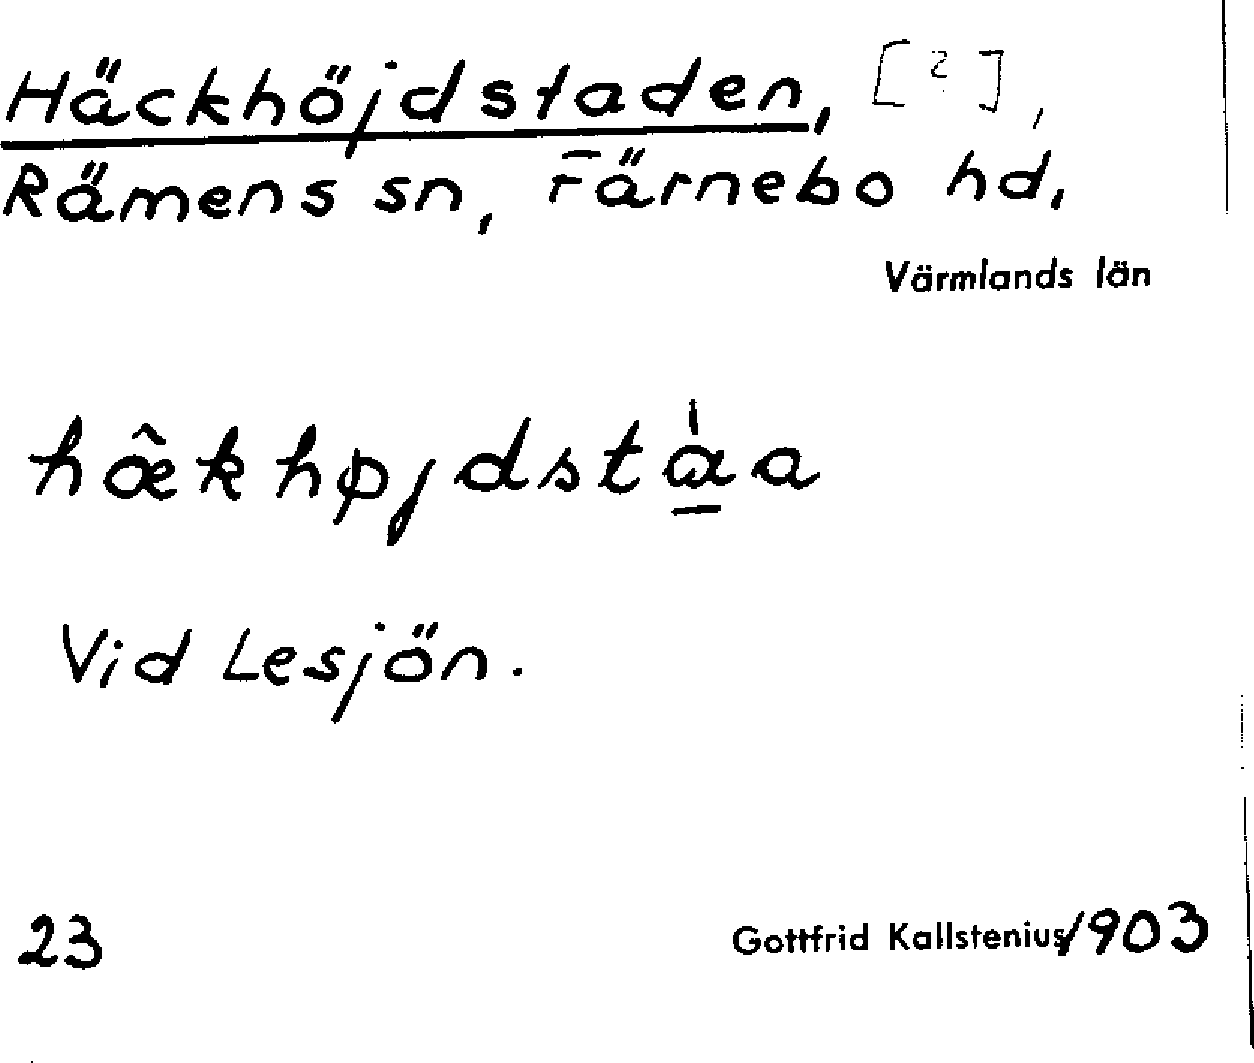 Häckhöjdstaden, [?],
Rämens sn, Färnebo hd,
Värmlands län
hæ̂khøjdstàa
Vid Lesjön.
23
Gottfrid Kallstenius 1903